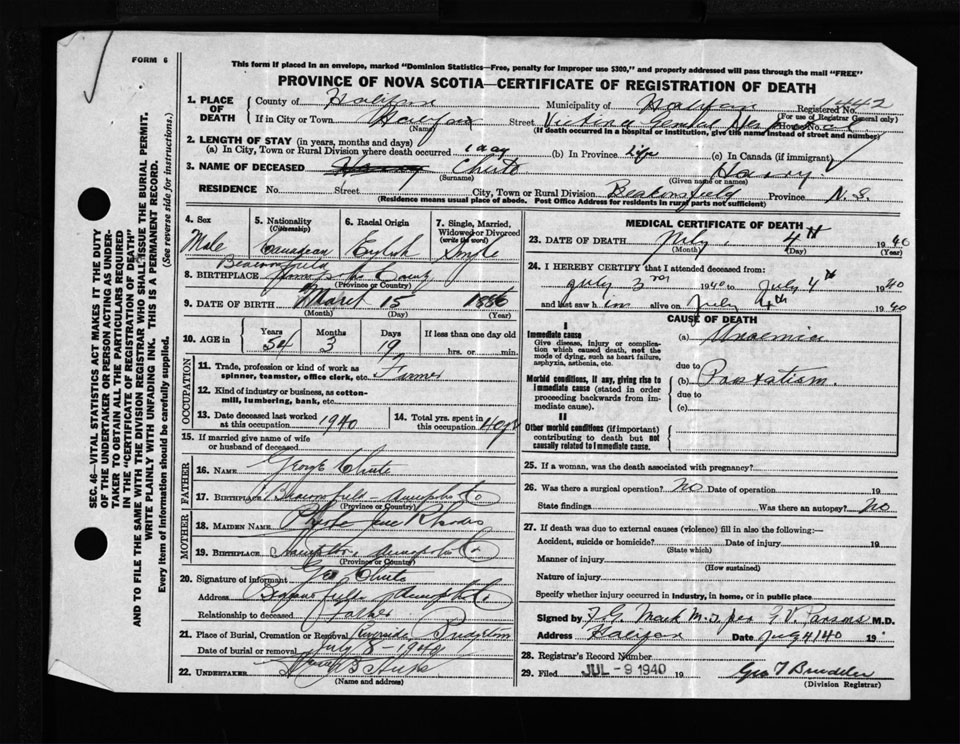 FORM 6
This form if placed in an envelope, marked "Dominion Statistics—Free, penalty for improper use $300," and properly addressed will pass through the mail "FREE"
PROVINCE OF NOVA SCOTIA—CERTIFICATE OF REGISTRATION OF DEATH
1. PLACE OF DEATH
County of Halifax Municipality of Halifax Registered No. 442
(For use of Registrar General only)
If in City or Town Halifax Street Victoria General Hospital House No.
(Name) (If death occurred in a hospital or institution, give the name instead of street and number)
2. LENGTH OF STAY (in years, months and days)
(a) In City, Town or Rural Division where death occurred 1 day (b) In Province Life (c) In Canada (if immigrant)
3. NAME OF DECEASED Harry Chute Harry
(Surname) (Given name or names)
RESIDENCE No. Street City, Town or Rural Division Beaconsfield Province N.S.
(Residence means usual place of abode. Post Office Address for residents in rural parts not sufficient)
4. Sex Male
5. Nationality (Citizenship) Canadian
6. Racial Origin English
7. Single, Married, Widowed or Divorced (write the word) Single
8. BIRTHPLACE Beaconsfield Annapolis County
(Province or Country)
9. DATE OF BIRTH March 15 1886
(Month) (Day) (Year)
10. AGE in Years 54 Months 3 Days 19 If less than one day old hrs. or min.
OCCUPATION
11. Trade, profession or kind of work as spinner, teamster, office clerk, etc. Farmer
12. Kind of industry or business, as cotton-mill, lumbering, bank, etc.
13. Date deceased last worked at this occupation 1940
14. Total yrs. spent in this occupation 40
15. If married give name of wife or husband of deceased
FATHER
16. NAME George Chute
17. BIRTHPLACE Beaconsfield Annapolis Co
MOTHER
18. MAIDEN NAME Jane Rhodes
19. BIRTHPLACE Hampton Annapolis Co
(Province or Country)
20. Signature of informant Geo Chute
Address Beaconsfield Annapolis Co
Relationship to deceased Father
21. Place of Burial, Cremation or Removal Riverside, Bridgetown
Date of burial or removal July 8 - 1940
22. UNDERTAKER
(Name and address)
MEDICAL CERTIFICATE OF DEATH
23. DATE OF DEATH July 4th 1940
(Month) (Day) (Year)
24. I HEREBY CERTIFY that I attended deceased from:
July 3rd 1940 to July 4th 1940
and last saw him alive on July 4th 1940
CAUSE OF DEATH
I
Immediate cause
Give disease, injury or complication which caused death, not the mode of dying, such as heart failure, asphyxia, asthenia, etc.
(a) Uraemia
due to
Morbid conditions, if any, giving rise to immediate cause (stated in order proceeding backwards from immediate cause).
(b) Prostatism.
due to
(c)
II
Other morbid conditions (if important) contributing to death but not causally related to immediate cause.
25. If a woman, was the death associated with pregnancy?
26. Was there a surgical operation? No Date of operation 19
State findings Was there an autopsy? No
27. If death was due to external causes (violence) fill in also the following:—
Accident, suicide or homicide? Date of injury 19
(State which)
Manner of injury
(How sustained)
Nature of injury
Specify whether injury occurred in industry, in home, or in public place
Signed by F.G. Mack M.D. per G.V. Parsons M.D.
Address Halifax Date July 4/40 19
28. Registrar's Record Number
29. Filed JUL -9 1940 19
(Division Registrar)
SEC. 46—VITAL STATISTICS ACT MAKES IT THE DUTY
OF THE UNDERTAKER OR PERSON ACTING AS UNDER-
TAKER TO OBTAIN ALL THE PARTICULARS REQUIRED
IN THE "CERTIFICATE OF REGISTRATION OF DEATH"
AND TO FILE THE SAME WITH THE DIVISION REGISTRAR WHO SHALL ISSUE THE BURIAL PERMIT.
WRITE PLAINLY WITH UNFADING INK. THIS IS A PERMANENT RECORD.
Every item of Information should be carefully supplied. (See reverse side for instructions.)